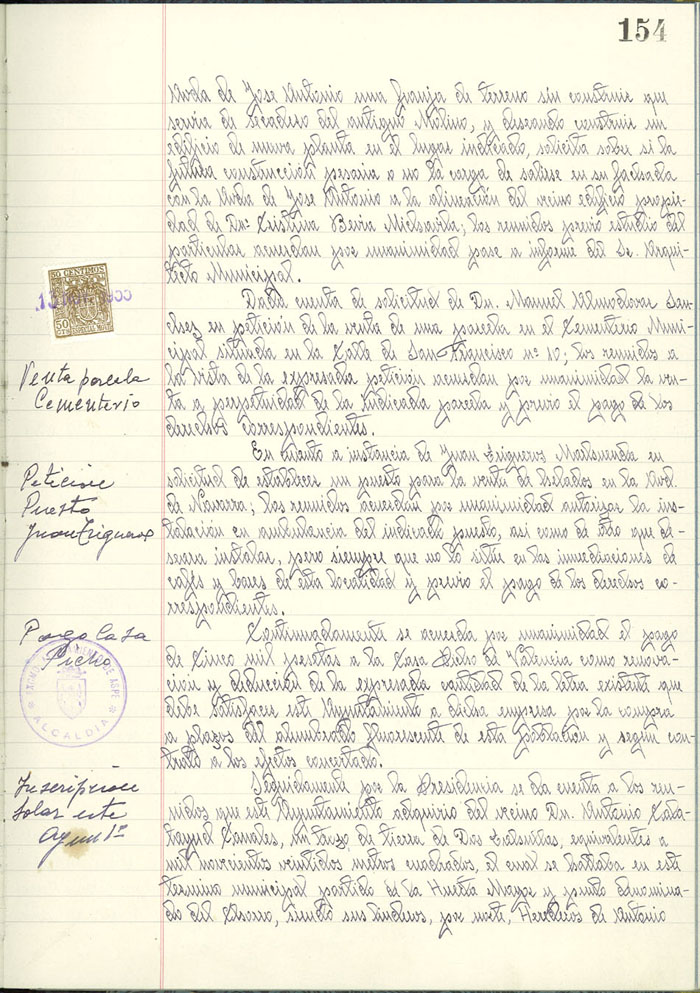 154
Avda de Jose Antonio una franja de terreno sin construir que
servia de secadero del antiguo Molino, y deseando construir un
edificio de nueva planta en el lugar indicado, solicita saber si la
futura construcción pesaria o no la carga de salirse en su fachada
con la Avda de Jose Antonio a la alineación del vecino edificio propie-
dad de Dña Cristina; los reunidos previo estudio del
particular acuerdan por unanimidad pase a informe del Sr. Arqui-
tecto Municipal.
50 CENTIMOS
50
CTS
Dada cuenta de solicitud de Dn. Manuel Almodovar San-
chez en petición de la venta de una parcela en el Cementerio Muni-
cipal situada en la Calle de San Francisco nº 10; los reunidos a
la vista de la expresada petición acuerdan por unanimidad la ven-
ta a perpetuidad de la indicada parcela y previo el pago de los
derechos correspondientes.
Venta parcela
Cementerio
En cuanto a instancia de Juan Trigueros en
solicitud de establecer un puesto para la venta de helados en la Avd.
de Navarra; los reunidos acuerdan por unanimidad autorizar la ins-
talación en ambulancia del indicado puesto, asi como de otro que de-
seara instalar, pero siempre que no lo situe en las inmediaciones de
cafés y bares de esta localidad y previo el pago de los derechos co-
rrespondientes.
Petición
Puesto
Juan Trigueros
Continuadamente se acuerda por unanimidad el pago
de Cinco mil pesetas a la Casa de Valencia como renova-
ción y deducción de la expresada cantidad de la letra existente que
debe satisfacer este Ayuntamiento a dicha empresa por la compra
a plazos del alumbrado fluorescente de esta población y según con-
trato a los efectos concertado.
Pago Casa
AYUNTAMIENTO DE ASPE
ALCALDIA
Seguidamente por la Presidencia se da cuenta a los reu-
nidos que este Ayuntamiento adquirio del vecino Dn. Antonio Cala-
tayud Canales, un trozo de tierra de Dos Tahullas, equivalentes a
mil novecientos ventidos metros cuadrados, el cual se hallaba en este
termino municipal partido de la Huerta Mayor y punto denomina-
do del, siendo sus linderos, por norte, Herederos de Antonio
Inscripción
solar este
Ayunt.º